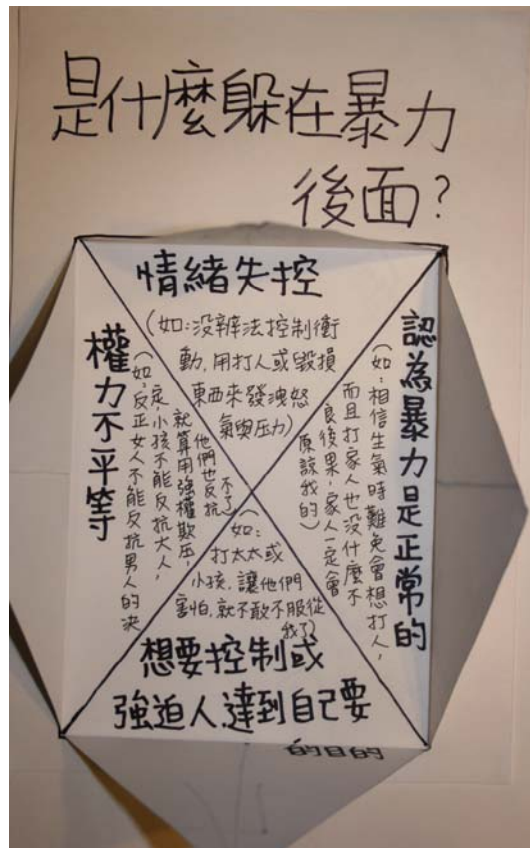 是什麼躲在暴力
後面?
情緒失控
(如:没辦法控制衝
動,用打人或毀損
東西來發洩怒
氣與压力)
權力不平等
(如:反正女人不能反抗男人的決
定,小孩不能反抗大人,
就算用強權欺压,
他們也反抗
不了)
認為暴力是正常的
(如:相信生氣時難免會想打人,
而且打家人也没什麼不
良後果,家人一定會
原諒我的)
(如:
打太太或
小孩,讓他們
害怕,就不敢不服從
我了)
想要控制或
強迫人達到自己要
的目的